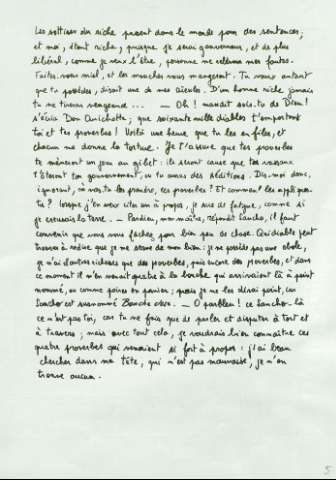 Les sottises du riche passent dans le monde pour des sentences;
et moi, étant riche, puisque je serai gouverneur, et de plus
libéral, comme je veux l'être, personne ne relèvera mes fautes.
Faites-vous miel, et les mouches vous mangeront. Tu vaux autant
que tu possèdes, disait une de mes aïeules. D'un homme riche jamais
tu ne tireras vengeance... — Oh! maudit sois-tu de Dieu!
s'écria Don Quichotte; que soixante mille diables t'emportent
toi et tes proverbes! Voilà une heure que tu les enfiles, et
chacun me donne la torture. Je t'assure que tes proverbes
te mèneront un jour au gibet: ils seront cause que tes vassaux
t'ôteront ton gouvernement, ou tu auras des séditions. Dis-moi donc,
ignorant, où vas-tu les prendre, ces proverbes? Et comment les appliques-
tu? lorsque j'en veux citer un à propos, je sue de fatigue, comme si
je creusais la terre. — Pardieu, mon maître, répondit Sancho, il faut
convenir que vous vous fâchez pour bien peu de chose. Qui diable peut
trouver à redire que je me serve de mon bien: je ne possède pas une obole,
je n'ai d'autres richesses que des proverbes, puis encore des proverbes, et dans
ce moment il m'en venait quatre à la bouche qui arrivaient là à point
nommé, ou comme poires en panier; mais je ne les dirai point, car
Sancho est surnommé Bouche close. — O parbleu! ce Sancho-là
ce n'est pas toi, car tu ne fais que de parler et disputer à tort et
à travers; mais avec tout cela, je voudrais bien connaître ces
quatre proverbes qui venaient si fort à propos: j'ai beau
chercher dans ma tête, qui n'est pas mauvaise, je n'en
trouve aucun.
5